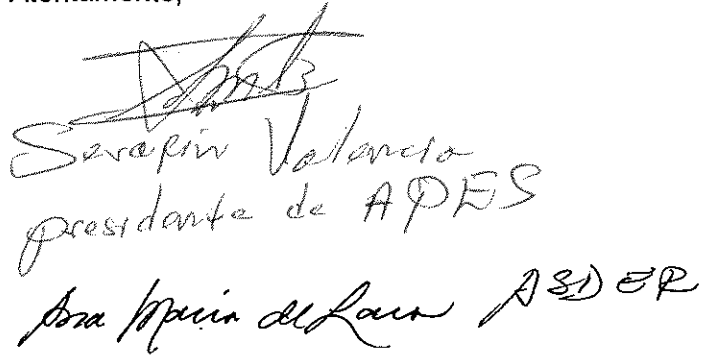 Atentamente,
Serafin Valencia
presidente de APES
Ana Maria de Lara ASDER